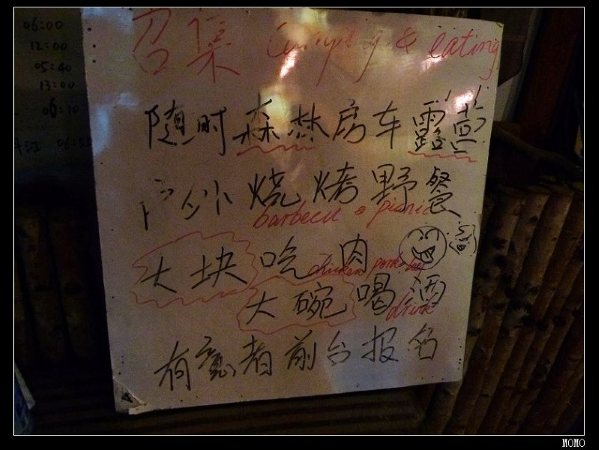 06:00
12:00
05:40
13:00
06:10
召集 Camping & eating
随时森林房车露营
户外烧烤野餐
barbecu & picnic
大块吃肉
chicken pork
大碗喝酒
drink
有意者前台报名
MOMO